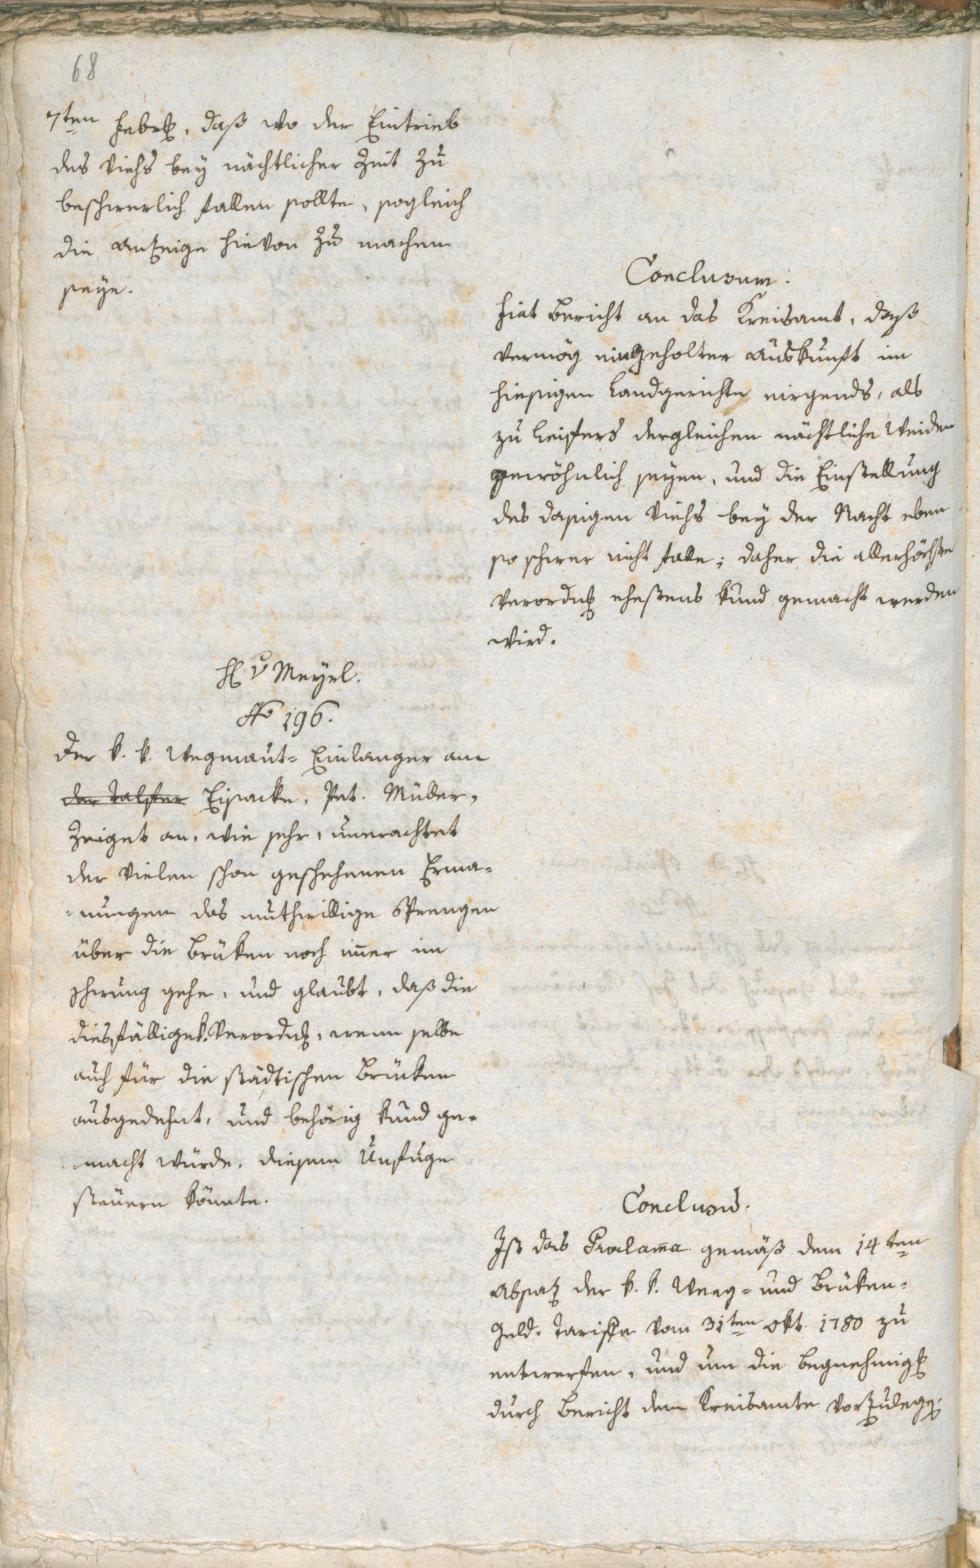 68
7ten Febr., daß wo der Eintrieb
des Viehs bey nächtlicher Zeit zu
beschwerlich fallen sollte, sogleich
die Anzeige hievon zu machen
seye.
Conclusum.
Fiat Bericht an das Kreisamt, daß
vermög eingeholter Auskunft im
hiesigen Landgerichte nirgends, als
zu Leifers dergleichen nächtliche Weiden
gewöhnlich seyen, und die Einstellung
des dasigen Viehs bey der Nacht eben
so schwer nicht falle; daher die allerhöchste
Verordng ehestens kund gemacht werden
wird.
H v Meyrl.
No 196.
Der k. k. Wegmaut-Einlanger am
der Talfer Eisacke, Pet. Müder,
zeiget an, wie sehr, unerachtet
der vielen schon geschehenen Erma-
-nungen das muthwillige Sprengen
über die Brüken noch im̅er im
schwung gehe, und glaubt, daß die
diesfällige k. Verordng, wenn selbe
auch für die städtischen Brüken
ausgedehnt, und behörig kund ge-
macht würde, diesem Unfuge
steuern könnte.
Conclusū.
Ist das Proclam̅a gemäß dem 14ten
Absatz der k. k. Weeg- und Brüken-
Geld-Tariffe vom 31ten Okt. 1780 zu
entwerfen, und um die Begnehmigg
durch Bericht dem Kreisamte vorzulegg.